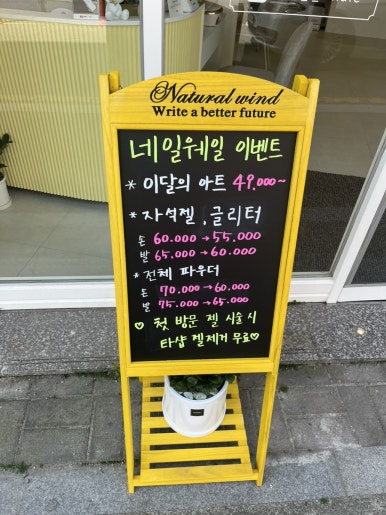 Natural wind
Write a better future
네일웨일 이벤트
* 이달의 아트 49.000~
* 자석젤, 글리터
손 60.000→55.000
발 65.000→60.000
* 전체 파우더
손 70.000→60.000
발 75.000→65.000
♡ 첫 방문 젤 시술 시
타샵 젤제거 무료♡